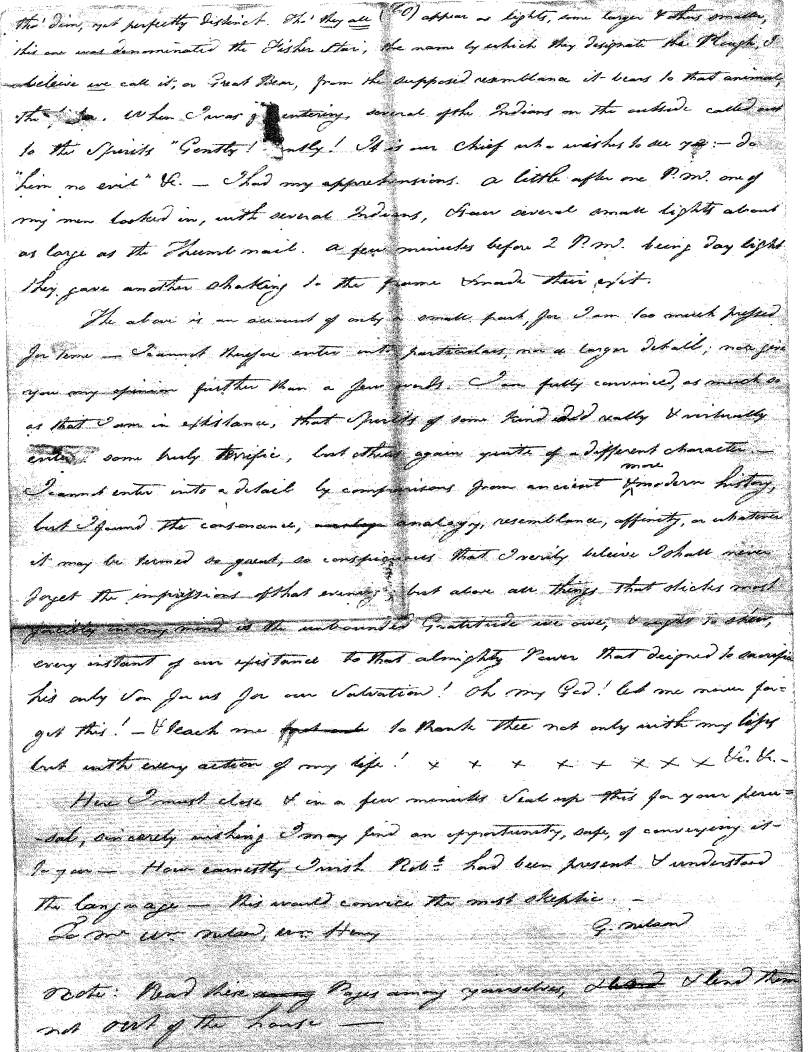 tho' dim, yet perfectly distinct. Tho' they all (60) appear as lights, some larger & others smaller,
this one was denominated the Fisher Star, the name by which they designate the Plough, I
beleive we call it, or Great Bear, from the supposed resemblance it bears to that animal,
the When I was entering, several of the Indians on the outside called out
to the Spirits "Gently! ntly! It is our chief who wishes to see yo:— do
"him no evil" &c. — I had my apprehensions. A little after one P.M. one of
my men looked in, with several Indians, & saw several small lights about
as large as the Thumb nail. A few minutes before 2 P.M. being day light
they gave another shaking to the frame & made their exit.
The above is an account of only a small part, for I am too much pressed
for time — I cannot therefore enter into particulars, nor a larger detail; nor give
you my opinion further than a few words. I am fully convinced, as much so
as that I am in existance, that Spirits of some kind did really & virtually
enter some truly terrific, but others again quite of a different character. —
I cannot enter into a detail by comparisons from ancient & more modern history,
but I found the consonance, analogy, resemblance, affinity, or whatever
it may be termed so great, so conspicuous that I verily beleive I shall never
forget the impressions of that evening, but above all things that sticks most
forcibly in my mind is the unbounded Gratitude we owe, & ought to shew,
every instant of our existance to that almighty Power that deigned to sacrifice
his only Son for us for our Salvation! Oh my God! let me never for=
get this! — & teach me to thank thee not only with my lips
but with every action of my life! x x x x x x x x &c. &c. —
Here I must close & in a few minutes Seal up this for your peru=
-sal, sincerely wishing I may find an opportunity, safe, of conveying it
to you — How earnestly I wish Robt. had been present & understood
the language — this would convice the most skeptic. —
To Mr. Wm. Nelson, Wm. Henry G. Nelson
Note: Read these Pages among yourselves, & lend them
not out of the house —